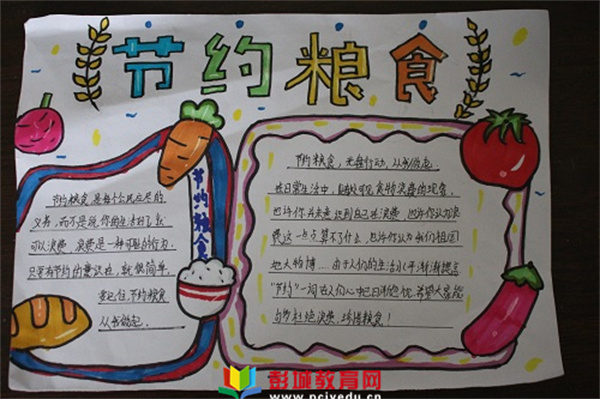 节约粮食
节约粮食
节约粮食,是每个公民应尽的
义务,而不是说你的生活好了么
可以浪费 浪费是一种可耻的行为
只要有节约的意识在,就很简单.
要记住,节约粮食
从我做起
节约粮食,光盘行动,从我做起
在日常生活中,随处可见食物浪费的现象,
也许你并未意识到自己在浪费,也许你认为浪
费这一点点算不了什么,也许你认为我们祖国
地大物博……由于人们的生活水平渐渐提高
"节约"一词在人们心中已日渐 希望大家能
自 杜绝浪费,珍惜粮食!
彭城教育网
www.pcjyedu.cn